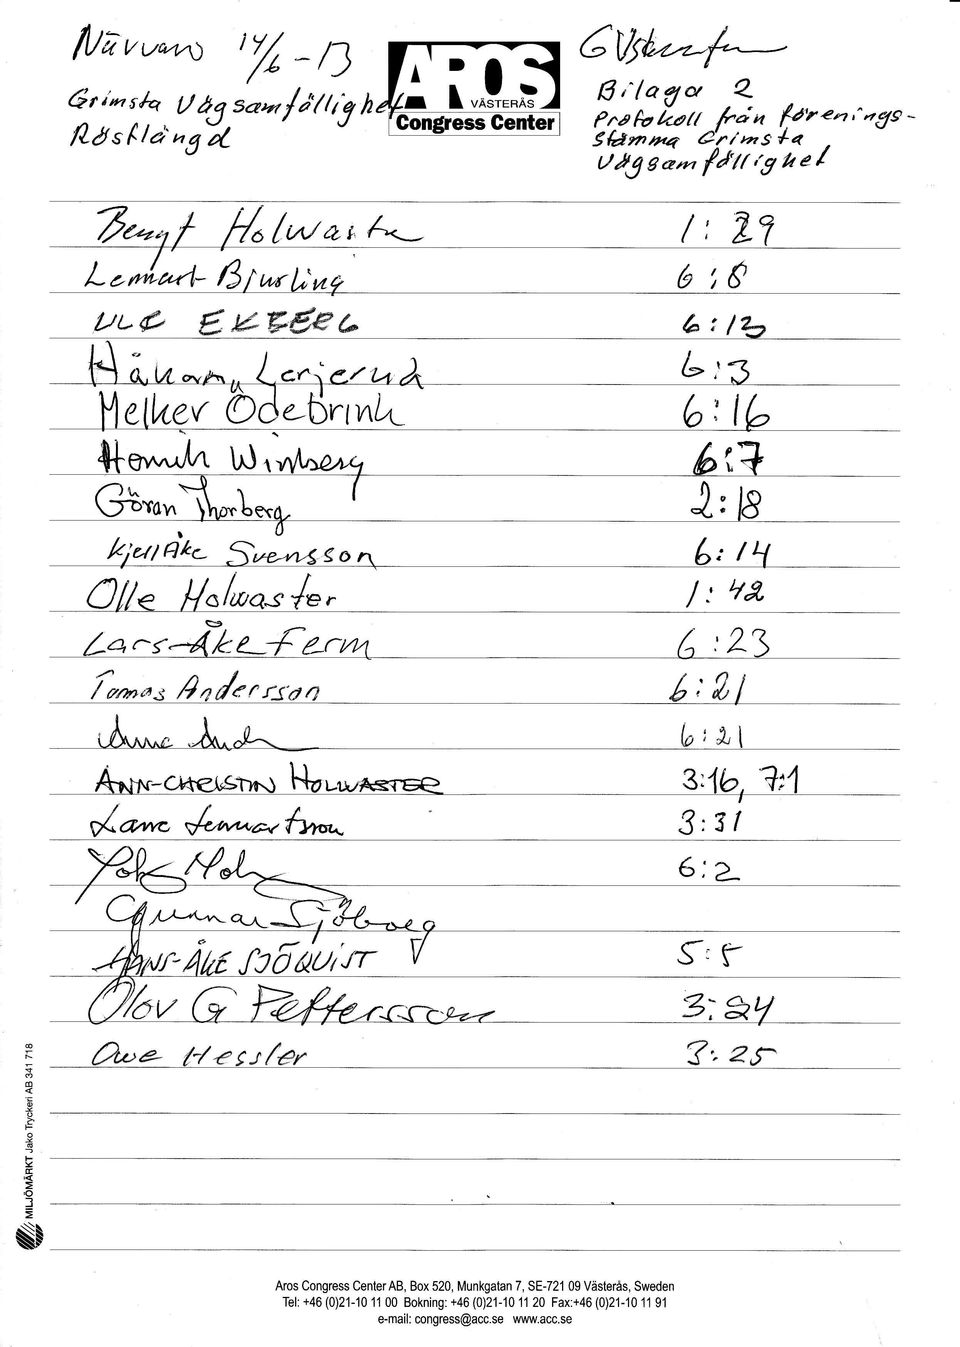 Närvaro 14/6 - 13
Grimsta Vägsamfällighet
Röstlängd
AROS
VÄSTERÅS
Congress Center
Bilaga 2
Protokoll från förenings-
stämma Grimsta
Vägsamfällighet
Bengt Holwaster 1:29
Lennart Bjurling 6:8
ULF EKBERG 6:13
Håkan Lerjerud 6:3
Melker Ödebrink 6:16
Henrik Winberg 6:7
Göran Thorberg 2:18
Kjell Åke Svensson 6:14
Olle Holwaster 1:42
Lars-Åke Ferm 6:23
Tomas Andersson 6:21
6:21
ANN-CHRISTIN HOLWASTER 3:16, 7:1
Lennartsson 3:31
6:2
Gunnar Sjöberg
HANS-ÅKE SJÖQUIST 5:5
Olov G Pettersson 3:24
Owe Hessler 3:25
MILJÖMÄRKT Jako Tryckeri AB 341 718
Aros Congress Center AB, Box 520, Munkgatan 7, SE-721 09 Västerås, Sweden
Tel: +46 (0)21-10 11 00 Bokning: +46 (0)21-10 11 20 Fax:+46 (0)21-10 11 91
e-mail: congress@acc.se www.acc.se